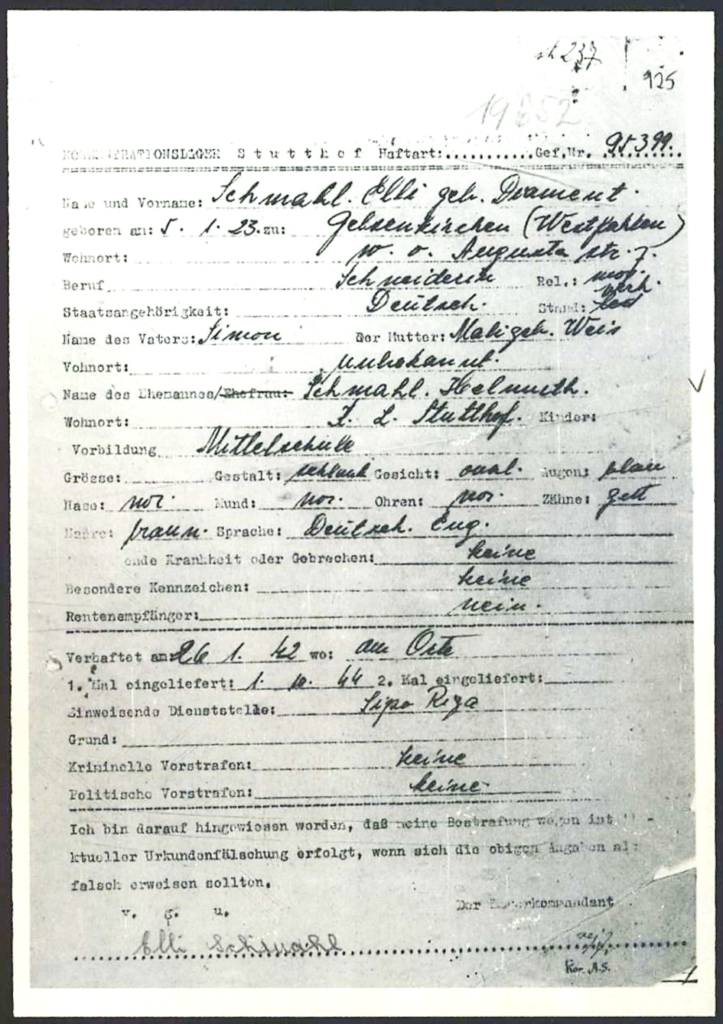 237
925
19652
KONZENTRATIONSLAGER Stutthof Haftart:..........Gef.Nr. 95399.
Name und Vorname: Schmahl. Elli geb. Diament.
geboren am: 5. 1. 23. zu: Gelsenkirchen (Westfahlen)
Wohnort: w. o. Augusta str. 7.
Beruf Schneiderin Rel.: mos.
Staatsangehörigkeit: Deutsch. Stand: verh.
Name des Vaters: Simon der Mutter: Mali geb. Weis
Wohnort: unbekannt.
Name des Ehemannes/Ehefrau: Schmahl. Helmuth.
Wohnort: K. L. Stutthof. Kinder:
Vorbildung Mittelschule
Grösse: Gestalt: schlank Gesicht: oval. Augen: blau
Nase: nor. Mund: nor. Ohren: nor. Zähne:
Haare: braun. Sprache: Deutsch. Eng.
ende Krankheit oder Gebrechen: keine
Besondere Kennzeichen: keine
Rentenempfänger: nein.
Verhaftet am: 26 1. 42 wo: am Orte
1. Mal eingeliefert: 1. 10. 44 2. Mal eingeliefert:
Einweisende Dienststelle: Sipo Riga
Grund:
Kriminelle Vorstrafen: keine
Politische Vorstrafen: keine.
Ich bin darauf hingewiesen worden, daß meine Bestrafung wegen int -
ktueller Urkundenfälschung erfolgt, wenn sich die obigen Angaben als
falsch erweisen sollten.
v. g. u. Der Lagerkommandant
Elli Schmahl